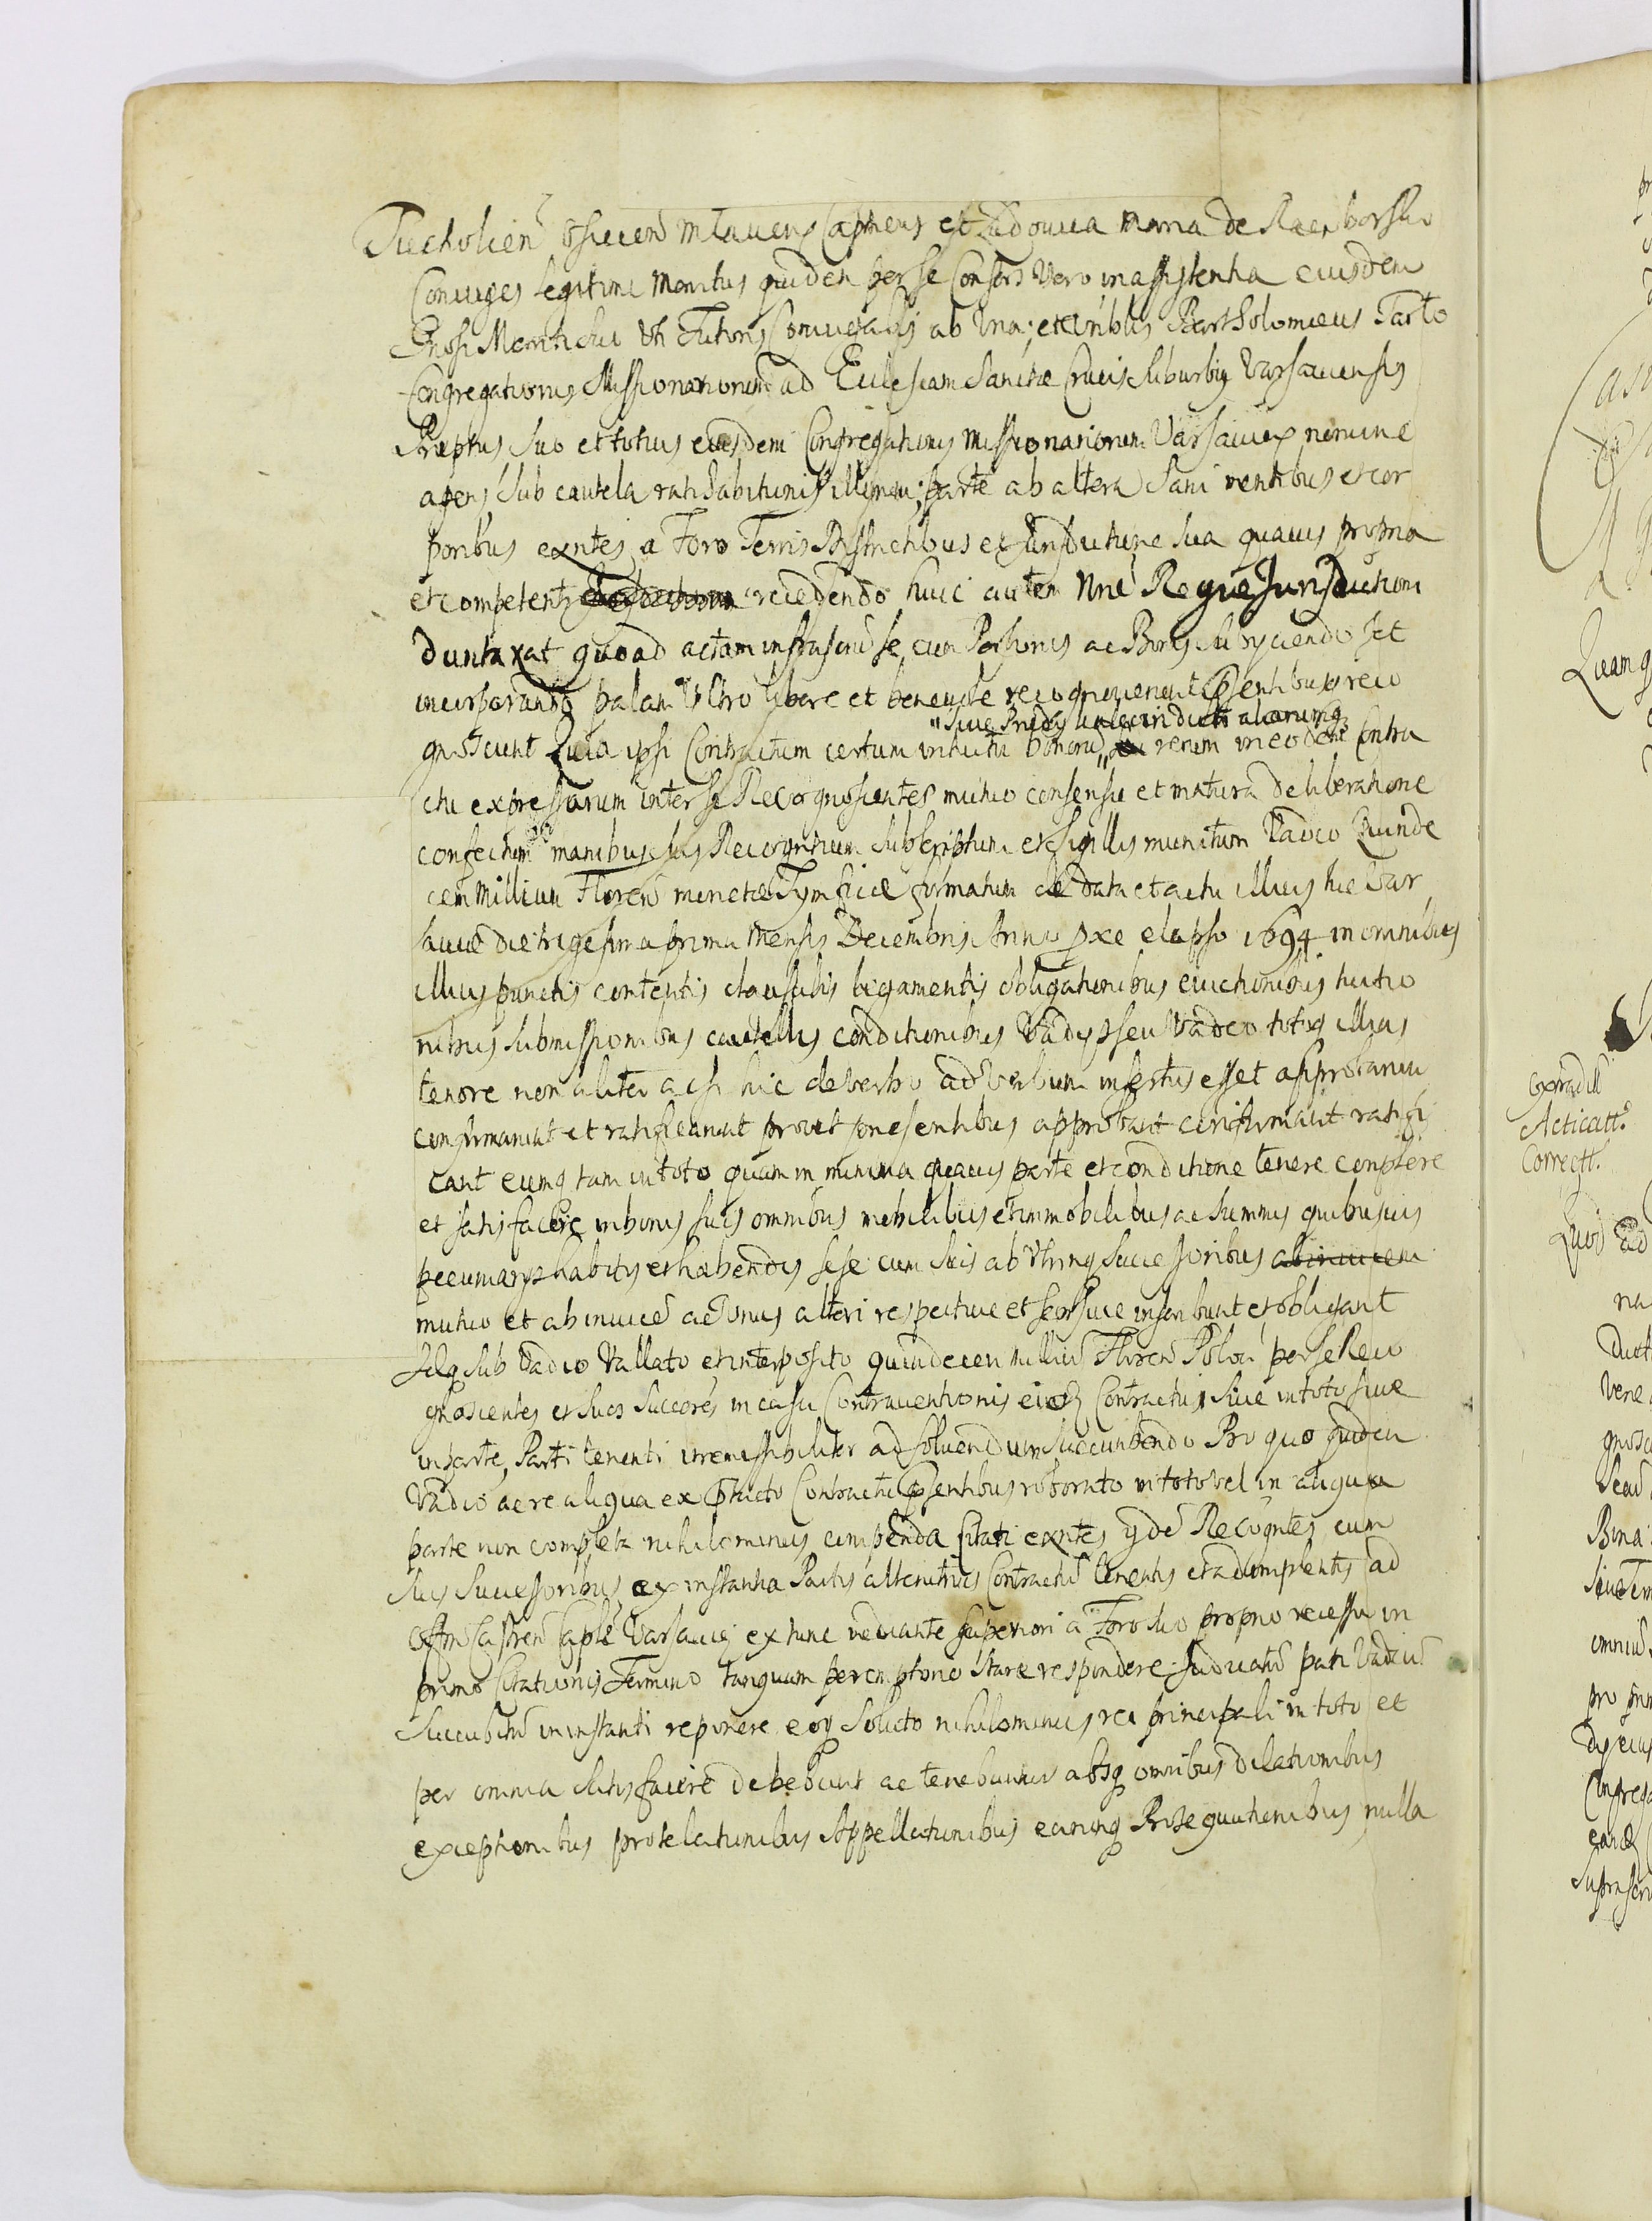 Tucholien Osiecen Mlauens Capneus et Ludouica Maria de Raciborsko
Coniuges legitimi Maritus quidem per se Consors Vero in assistentia eiusdem
Gnosi Mariti sui Vti Tutoris Coniugalis ab Vna; et Vnblis Bartholomaeus Tarło
Congregationis Missionariorum ad Ecclesiam Sanctae Crucis Suburbij Varsauiensis
Praeptus Suo et totius eiusdem Congregationis Missionariorum Varsauien nomine
agens Sub cautela ratihabitionis illorum; parte ab altera Sani mentibus et cor
poribus exntes a Foro Terris Districtibus et Jurisdictione Sua quauis propria
et competenti recedendo huic autem Nrae Regiae Jurisdictioni
duntaxat quoad actum infrascrip se cum Personis ac Bonis Subyciendo et
incorporando palam Vltro libere et beneuole recognouerunt Psentibusq reco
"Siue Prædy in alecin dicti aliarumq
gnoscunt Quia ipsi Contractum certum intuitu bonorū " rerum in eodem Contra
ctu expressarum inter se Recognoscentes mutuo consensu et matura deliberatione
confectum manibus suis Recogntium Subscriptum et Sigillis munitum Vadio Quinde
cem Millium Floren monetae Tymficae firmatum de data et actu illius hic Var
sauiae die trigesima prima Mensis Decembris Anno pxe elapso 1694 in omnibus
illius punctis contentis clausulis ligamentis obligationibus euictionibus tuitio
nibus Submissionibus cautellis conditionibus Vadys seu Vadio totoq illius
tenore non aliter ac si hic de verbo ad Verbum insertus esset approbarunt
confirmarunt et ratificarunt prout praesentibus approbant confirmant ratifi
cant eumq tam in toto quam in minima quauis parte et conditione tenere complere
et satisfacere in bonis suis omnibus mobilibus et immobilibus ac Summis quibusuis
pecuniarys habitis et habendis sese cum suis ab Vtrinq Successoribus abinuicem
mutuo et ab inuicē ac Vnus alteri respectiue et seorsiue inscribunt et obligant
Idq sub Vadio Vallato et interposito quindecem milliū Floren Polon per se Reco
gnoscentes et suos Succores in casu Contrauentionis eiusd Contractus Siue in toto siue
in parte, Parti tenenti irremissibiliter ad soluendum Succumbendo Pro quo quidem
Vadio ac re aliqua ex Ptacto Contractu Psentibus roborato in toto vel in aliqua
parte non completa nihilominus compenda Citati exntes ijdē Recogntes cum
suis Successoribus ex instantia Partis alterutrius Contractū tenentis et adimplentis ad
Offm Castren Caple Varsauien ex tunc mediante superiori a Foro suo proprio recessu in
primo Citationis Termino tanquam peremptorio Stare respondere Judicatū pati Vadiū
Succubitū in instanti reponere eoq Soluto nihilominus rei principali in toto et
per omnia satisfacere debebunt ac tenebuntur absq omnibus dilationibus
exceptionibus protelationibus Appellationibus earumq Prosequutionibus nulla
Corradill
Acticatt.
Correctt.